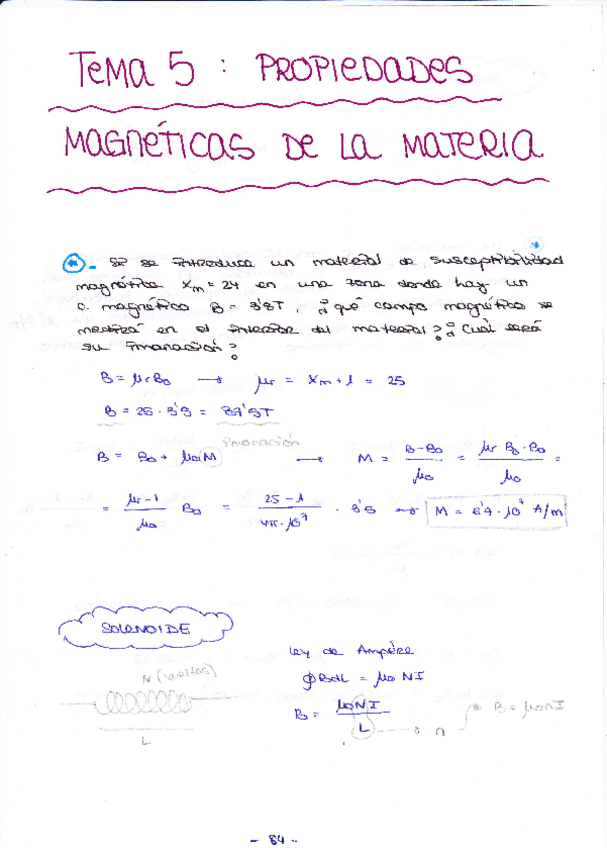 TEMA 5 : PROPIEDADES
MAGNÉTICAS DE LA MATERIA
* - Si se introduce un material de susceptibilidad *
magnética Xm = 24 en una zona donde hay un
c. magnético B = 3'5T, ¿qué campo magnético se
medirá en el interior del material? ¿Cuál será
su imanación?
B = μr B0 → μr = Xm + 1 = 25
B = 25 · 3'5 = 87'5T
imanación
B = B0 + μ0M → M = B-B0 / μ0 = μr B0 - B0 / μ0 =
= μr - 1 / μ0 B0 = 25 - 1 / 4π·10⁻⁷ · 3'5 → M = 6'7 · 10⁷ A/m
SOLENOIDE
Ley de Ampère
N (vueltas)
∮Bdl = μ0 NI
B = μ0NI / L → n → B = μ0nI
L
- 84 -